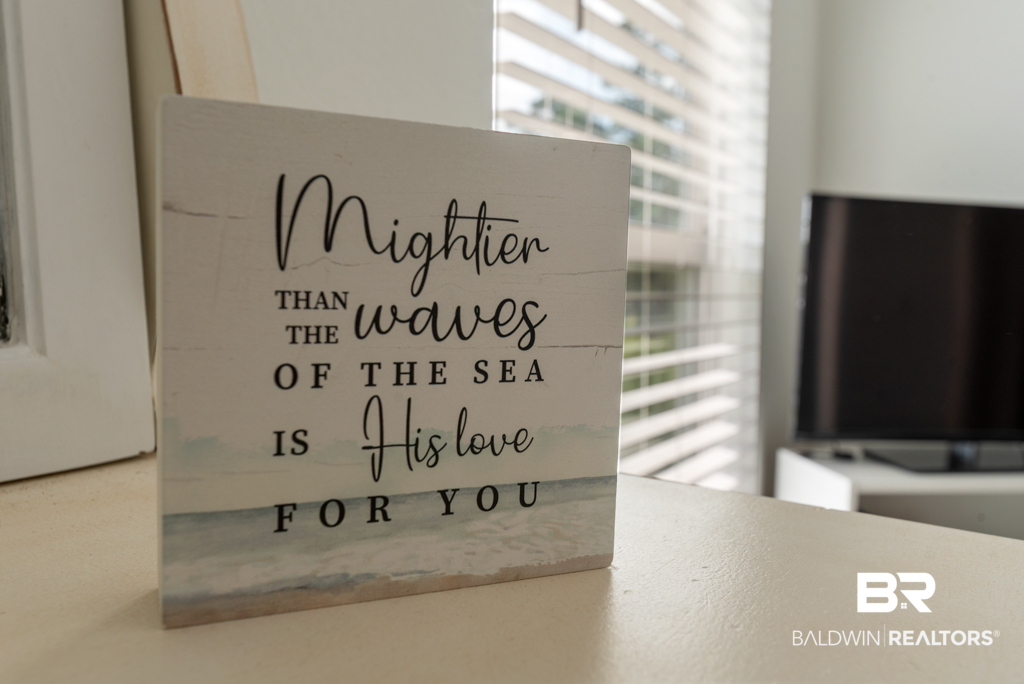 Mightier
THAN
THE waves
OF THE SEA
IS His love
FOR YOU
BR
BALDWIN REALTORS®